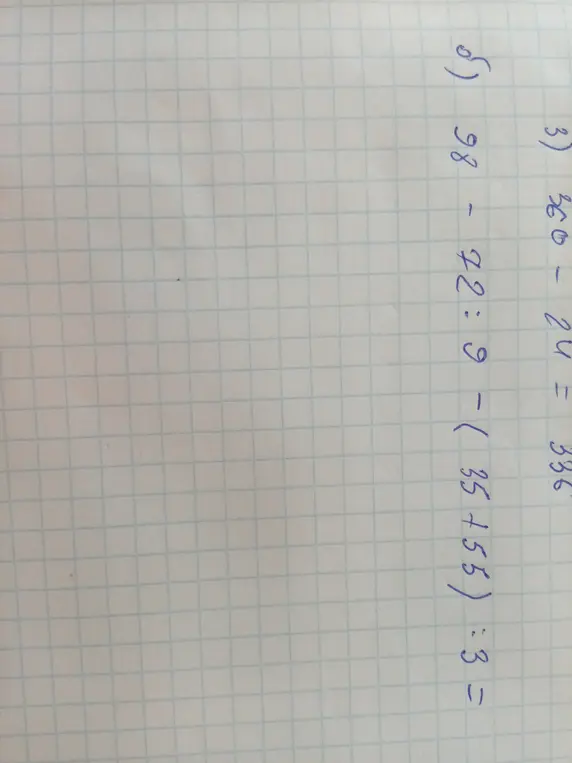 3) 360 - 24 = 336
б) 98 - 72 : 9 - ( 35 + 55 ) : 3 =